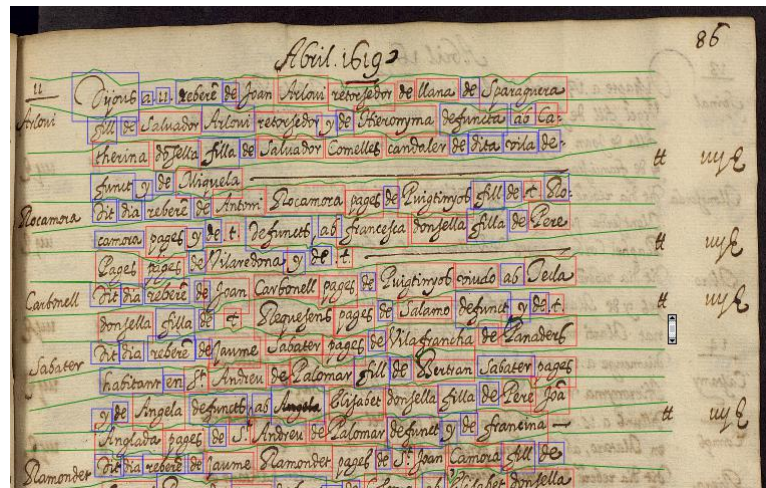 86
Abril. 1619
11
Dijous a 11. reberē de Joan Arloui retorsedor de llana de Sparaguera
Arloui fill de Salvador Arloui retorsedor y de Hieronyma defuncta ab Ca-
therina dōsella filla de Salvador Comelles candaler de dita vila de-
funct y de Miquela
Rocamora Dit dia reberē de Antoni Rocamora pages de Puigtinyos fill de t Ro-
camora pages y de .t. defuncts, ab francesca donsella filla de Pere
Pages pages de Vilaredona y de .t.
Carbonell Dit dia reberē de Joan Carbonell pages de Puigtinyos viudo ab Tecla
donsella filla de t Requesens pages de Salamo defunct y de .t.
Sabater Dit dia reberē de Jaume Sabater pages de Vilafrancha de Panades
habitant en St. Andreu de Palomar fill de Bertran Sabater pages
y de Angela defuncts ab Angela Elizabet donsella filla de Pere Joā
Anglada pages de St. Andreu de Palomar defunct y de francina
Ramondet Dit dia reberē de Jaume Ramondet pages de St. Joan Camora fill de